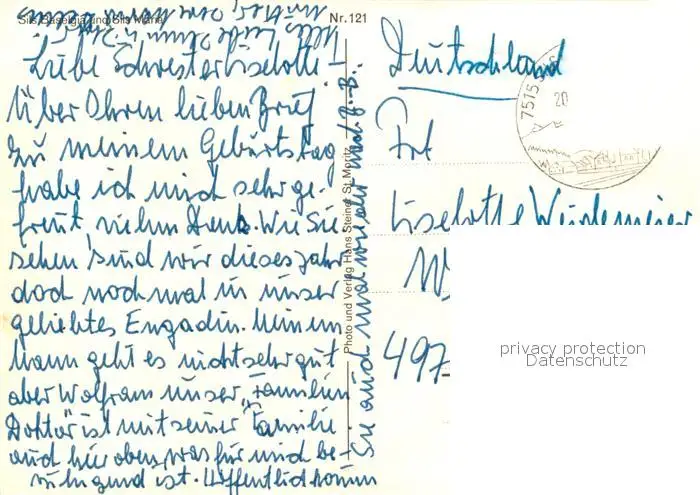 Sils Baselgia und Sils Maria
Nr. 121
Liebe Schwester Liselotte!
Über Ihren lieben Brief
zu meinem Geburtstag
habe ich mich sehr ge-
freut, vielen Dank. Wie Sie
sehen, sind wir dieses Jahr
doch noch mal in unser
geliebtes Engadin. Meinem
Mann geht es nicht sehr gut
aber Wolfram unser "Familien
Doktor" ist mit seiner Familie
auch hier oben, was für mich be-
ruhigend ist. Hoffentlich komm
Sie auch mal wieder nach
Alles Liebe Ihnen u. Ihrer
Mutter,
Photo und Verlag Hans Steiner, St. Moritz
Deutschland
Frl
Liselotte
W
497
7515 S
20
privacy protection
Datenschutz